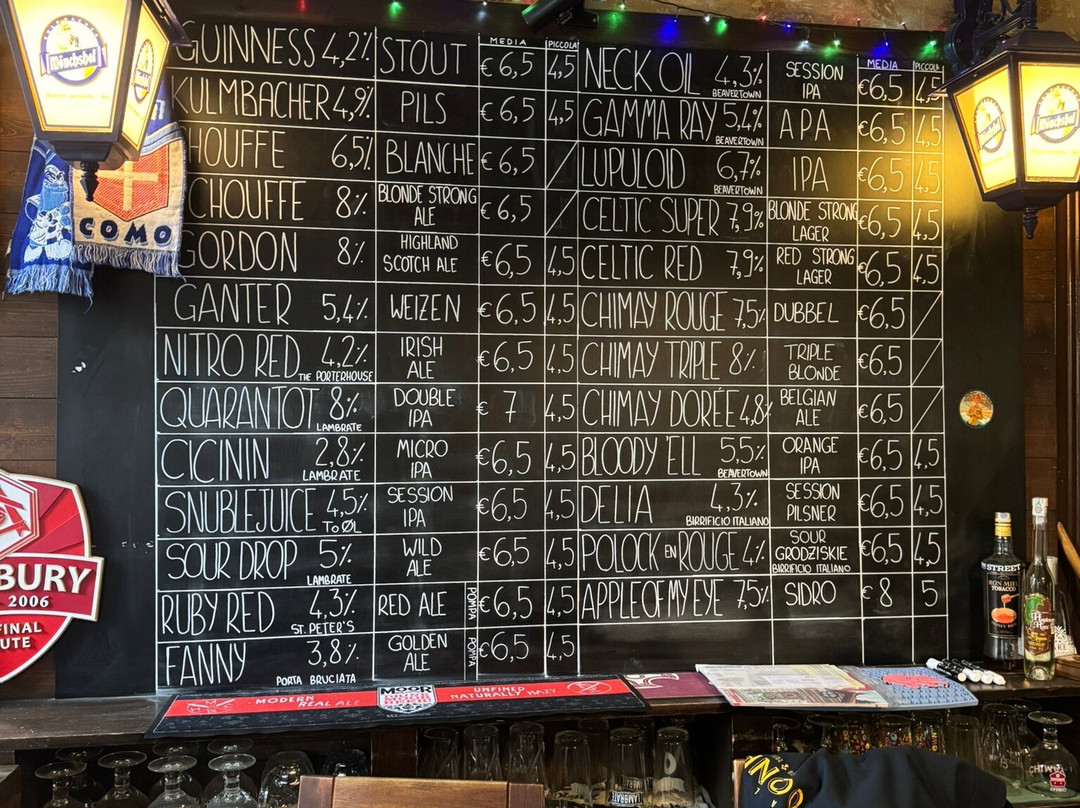 Mönchshof
COMO
BURY
2006
FINAL
UTE
MEDIA PICCOLA
GUINNESS 4,2% STOUT € 6,5 4,5
KULMBACHER 4,9% PILS € 6,5 4,5
HOUFFE 6,5% BLANCHE € 6,5
CHOUFFE 8% BLONDE STRONG ALE € 6,5
GORDON 8% HIGHLAND SCOTCH ALE € 6,5 4,5
GANTER 5,4% WEIZEN € 6,5 4,5
NITRO RED 4,2% THE PORTERHOUSE IRISH ALE € 6,5 4,5
QUARANTOT 8% LAMBRATE DOUBLE IPA € 7 4,5
CICININ 2,8% LAMBRATE MICRO IPA € 6,5 4,5
SNUBLEJUICE 4,5% TO ØL SESSION IPA € 6,5 4,5
SOUR DROP 5% LAMBRATE WILD ALE € 6,5 4,5
RUBY RED 4,3% ST. PETER'S RED ALE POMPA € 6,5 4,5
FANNY 3,8% PORTA BRUCIATA GOLDEN ALE POMPA € 6,5 4,5
MEDIA PICCOLA
NECK OIL 4,3% BEAVERTOWN SESSION IPA € 6,5 4,5
GAMMA RAY 5,4% BEAVERTOWN APA € 6,5 4,5
LUPULOID 6,7% BEAVERTOWN IPA € 6,5 4,5
CELTIC SUPER 7,9% BLONDE STRONG LAGER € 6,5 4,5
CELTIC RED 7,9% RED STRONG LAGER € 6,5 4,5
CHIMAY ROUGE 7,5% DUBBEL € 6,5
CHIMAY TRIPLE 8% TRIPLE BLONDE € 6,5
CHIMAY DORÉE 4,8% BELGIAN ALE € 6,5
BLOODY 'ELL 5,5% BEAVERTOWN ORANGE IPA € 6,5 4,5
DELIA 4,3% BIRRIFICIO ITALIANO SESSION PILSNER € 6,5 4,5
POLOCK EN ROUGE 4% SOUR GRODZISKIE BIRRIFICIO ITALIANO € 6,5 4,5
APPLE OF MY EYE 7,5% SIDRO € 8 5
Mönchshof
Mönchshof
MODERN
REAL ALE
MOOR
UNFINED
NATURALLY HAZY
STREET
TOBACCO
CHIMAY